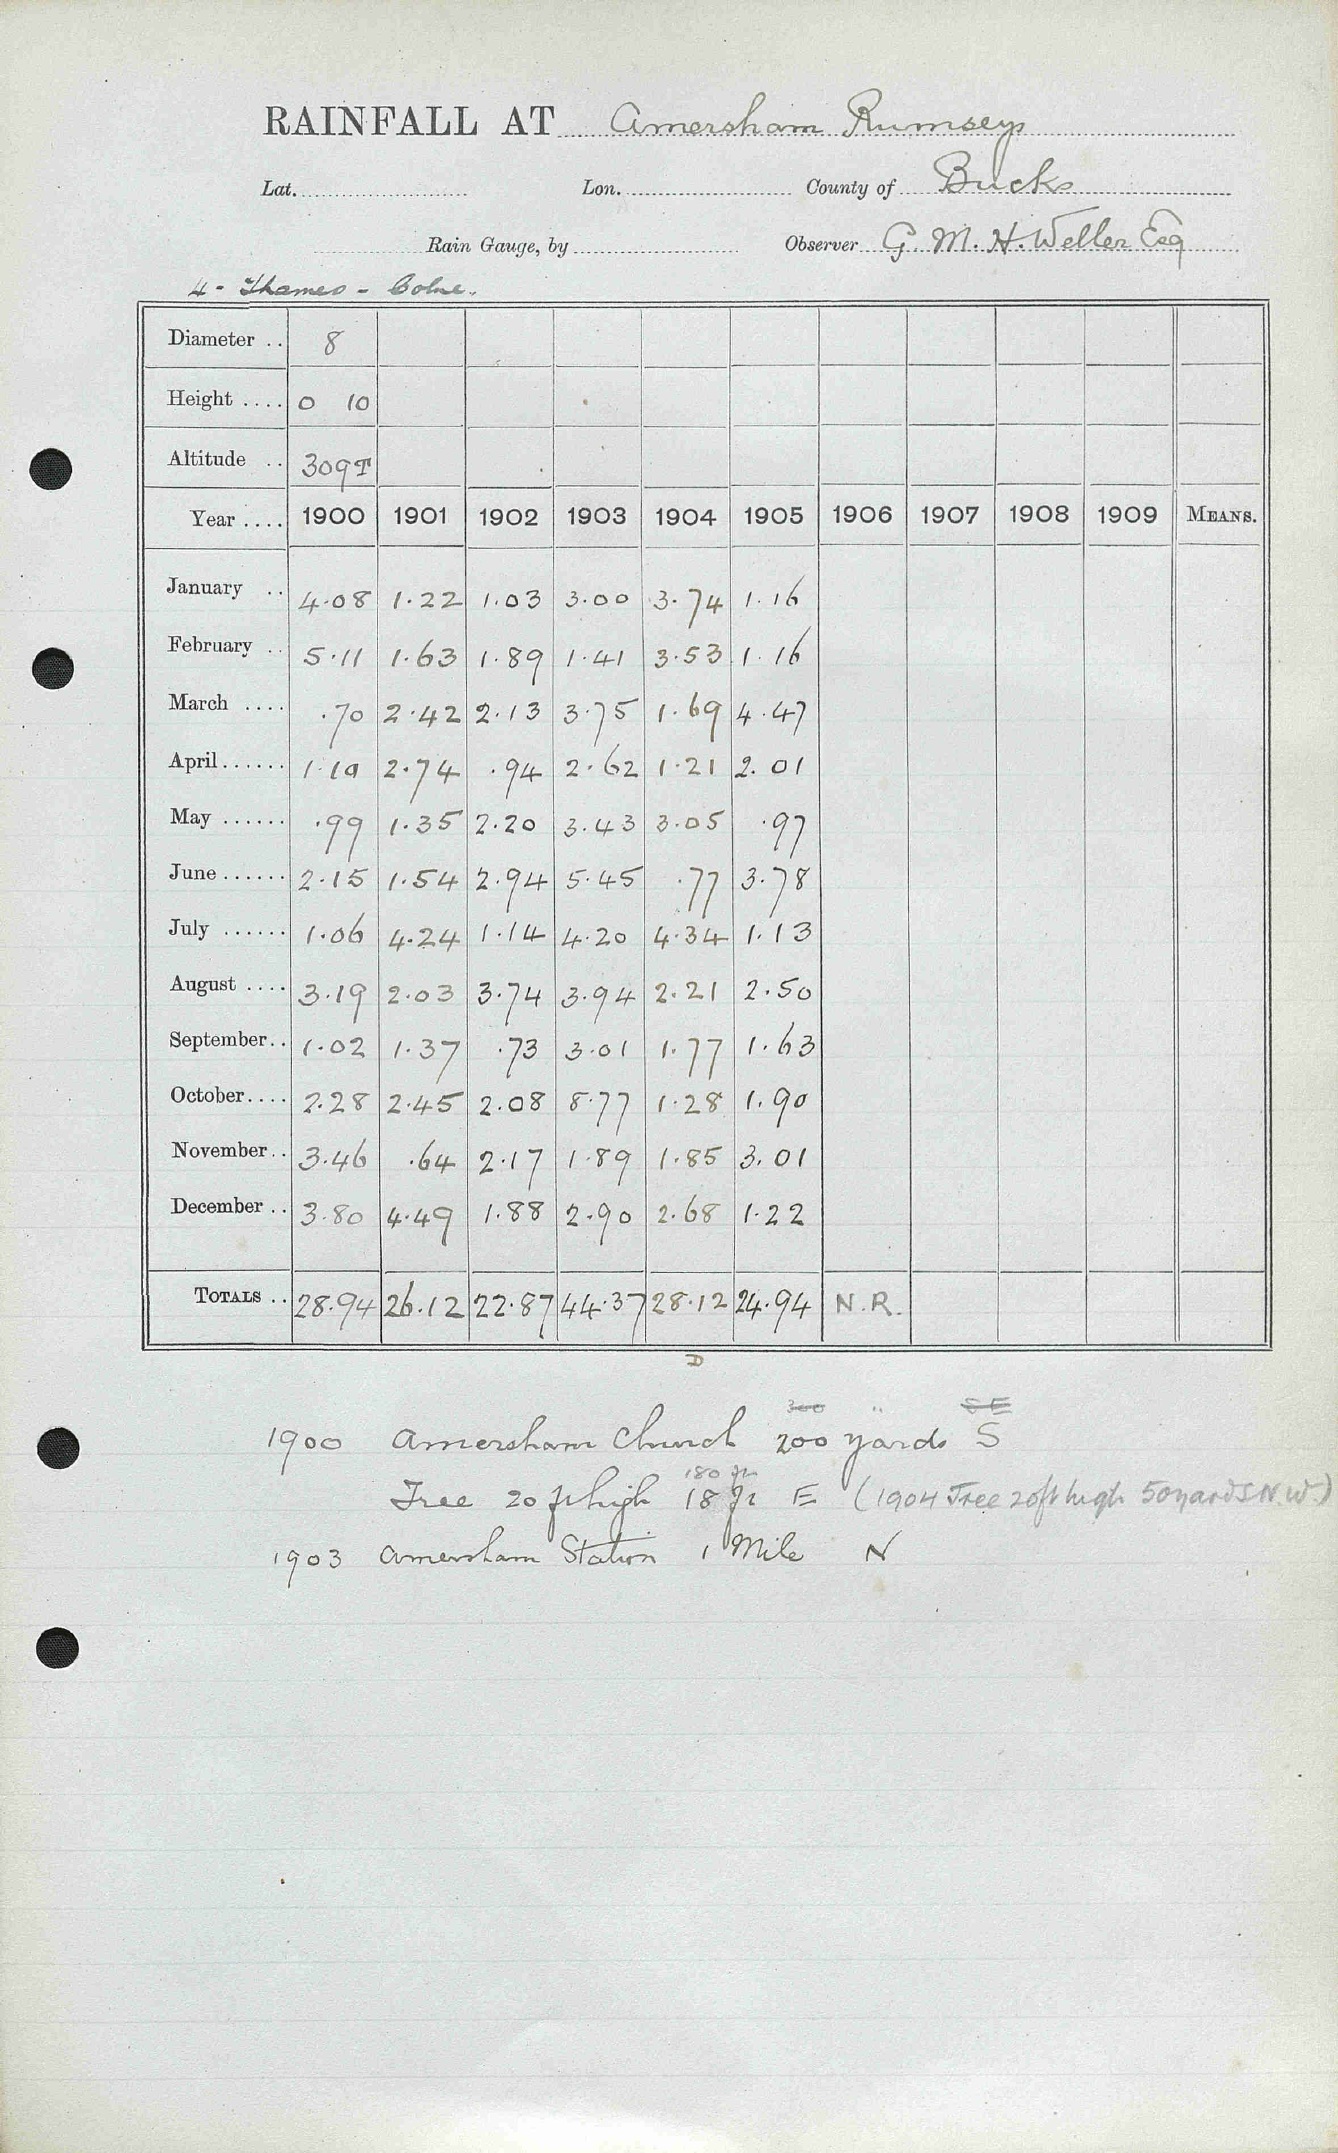 RAINFALL AT Amersham Rumseys
Lat. Lon. County of Bucks
Rain Gauge, by Observer G. M. H. Weller Esq
4 - Thames - Colne.
Diameter .. 8
Height .... 0 10
Altitude .. 309T
Year .... 1900 1901 1902 1903 1904 1905 1906 1907 1908 1909 MEANS.
January .. 4.08 1.22 1.03 3.00 3.74 1.16
February .. 5.11 1.63 1.89 1.41 3.53 1.16
March .... .70 2.42 2.13 3.75 1.69 4.47
April...... 1.10 2.74 .94 2.62 1.21 2.01
May ...... .99 1.35 2.20 3.43 3.05 .97
June ...... 2.15 1.54 2.94 5.45 .77 3.78
July ...... 1.06 4.24 1.14 4.20 4.34 1.13
August .... 3.19 2.03 3.74 3.94 2.21 2.50
September.. 1.02 1.37 .73 3.01 1.77 1.63
October.... 2.28 2.45 2.08 8.77 1.28 1.90
November.. 3.46 .64 2.17 1.89 1.85 3.01
December .. 3.80 4.49 1.88 2.90 2.68 1.22
TOTALS .. 28.94 26.12 22.87 44.37 28.12 24.94 N.R.
D
300 " SE
1900 Amersham Church 200 yards S
180 ft
Tree 20 ft high 18 ft E (1904 Tree 20ft high 50 yards N.W.)
1903 Amersham Station 1 Mile N